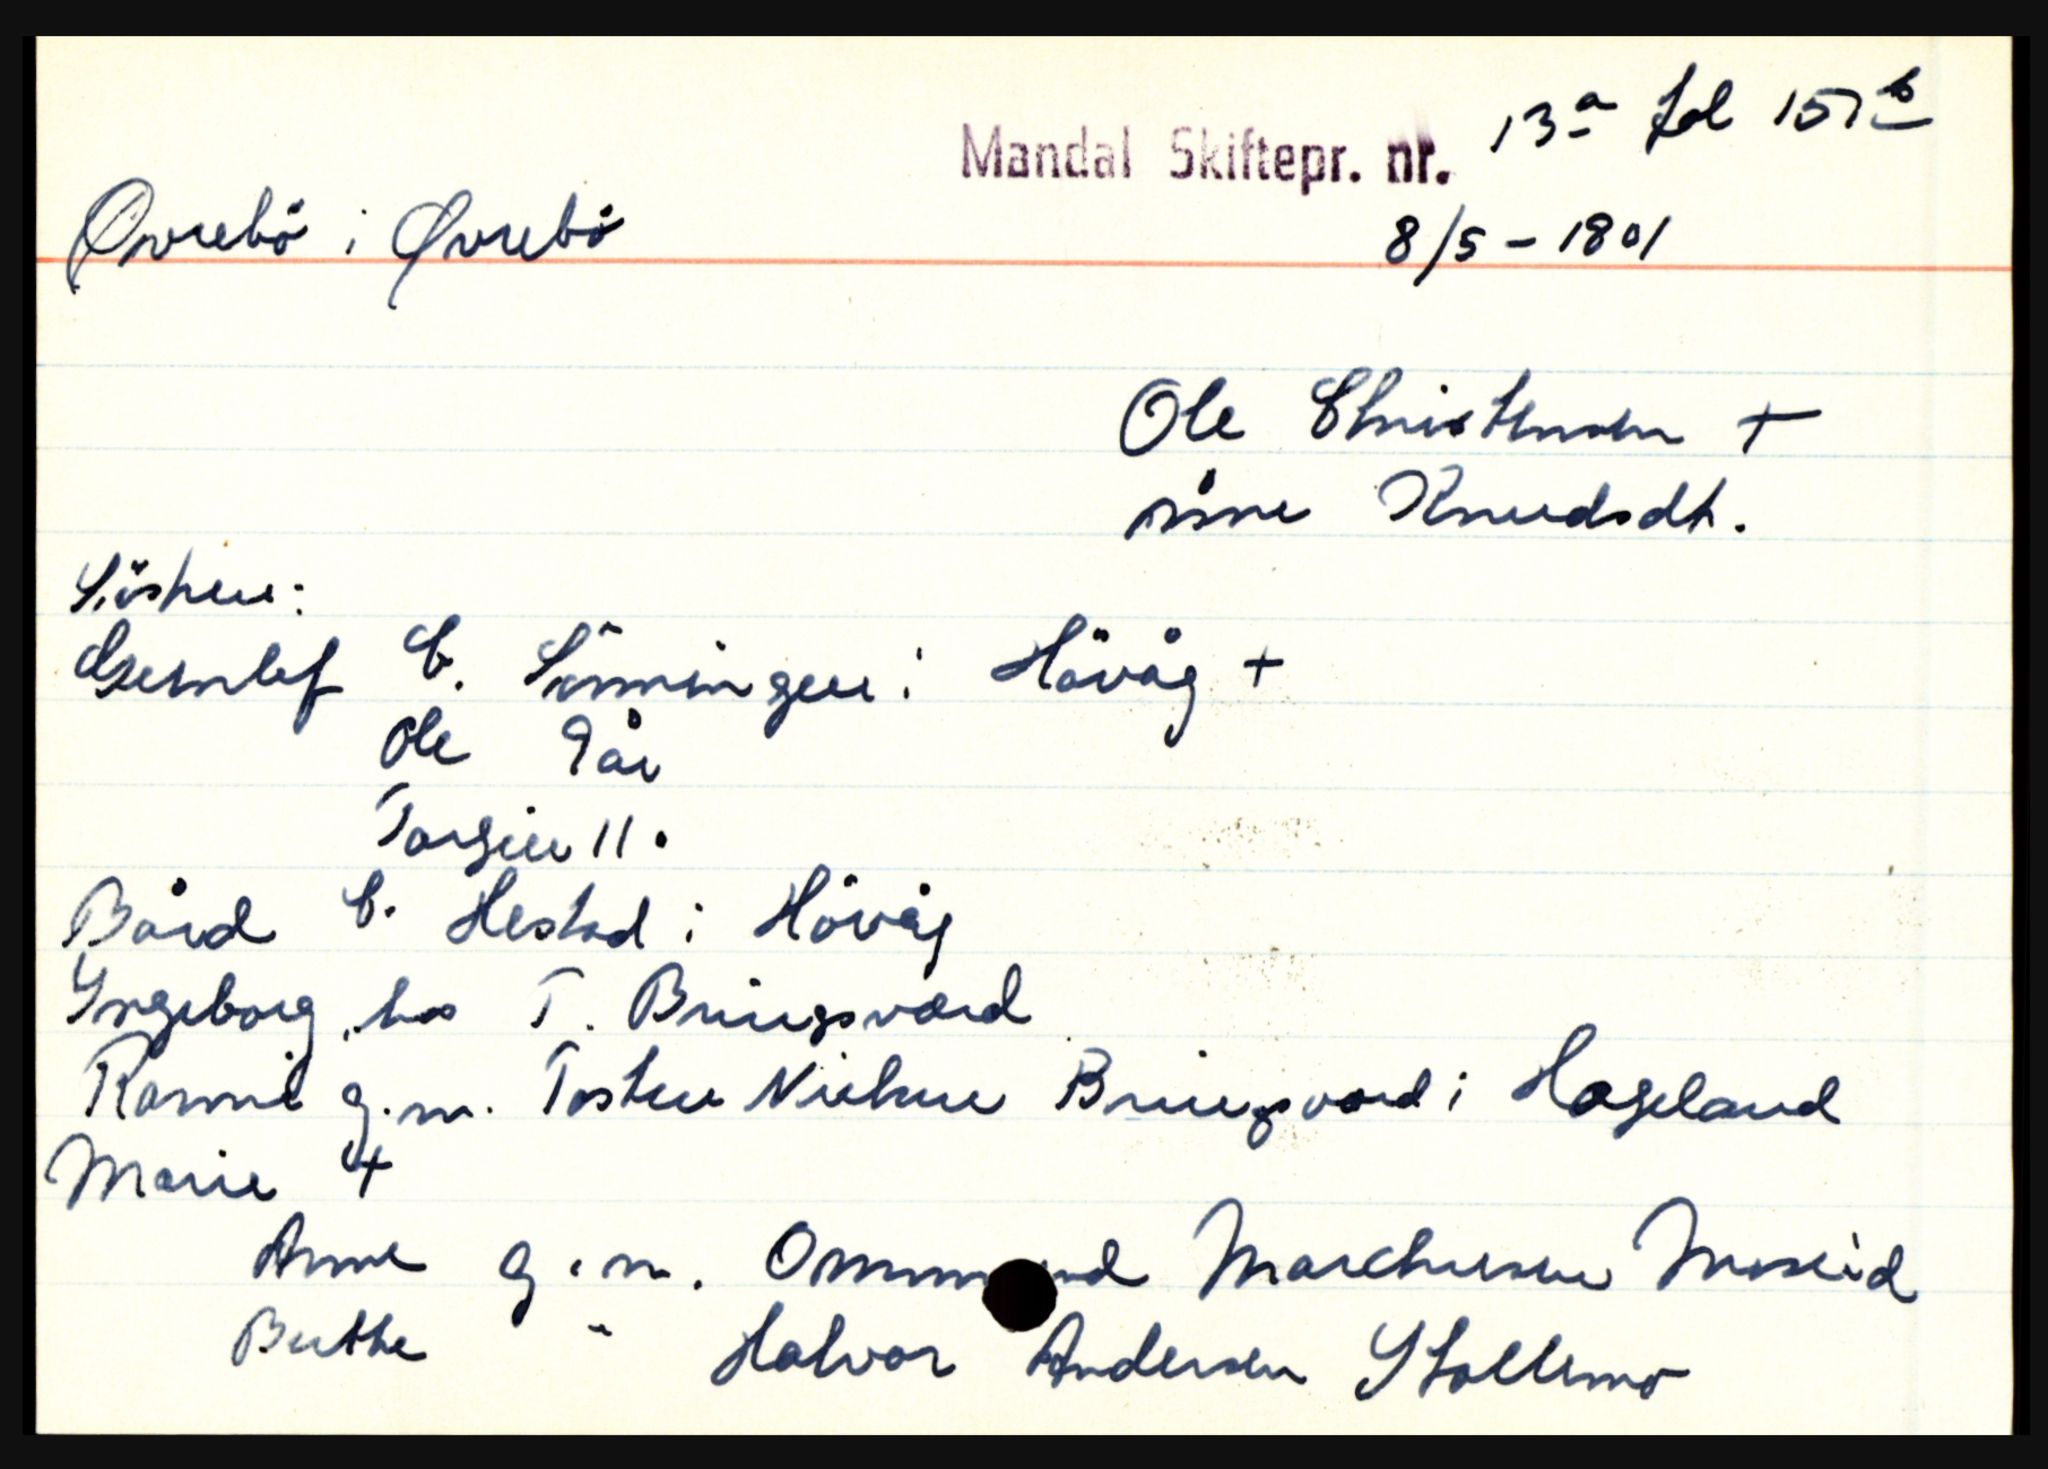 Mandal Skiftepr. nr. 13a fol 157b
Øvrebö i Øvrebö
8/5 - 1801
Ole Christensen +
Åsne Knudsdt.
Sösken:
C. i Hövåg +
Ole 9 år
Torgier 11 "
Bård C. Hestad i Hövåg
Yngeborg, hos T. Bringsværd
Ramié g.m. Tosten Nielsen Bringsværd i Hægeland
Marie +
Anne g.m. Ommund Marchusen Moseid
Berthe " Halvor Andersen Stallemo